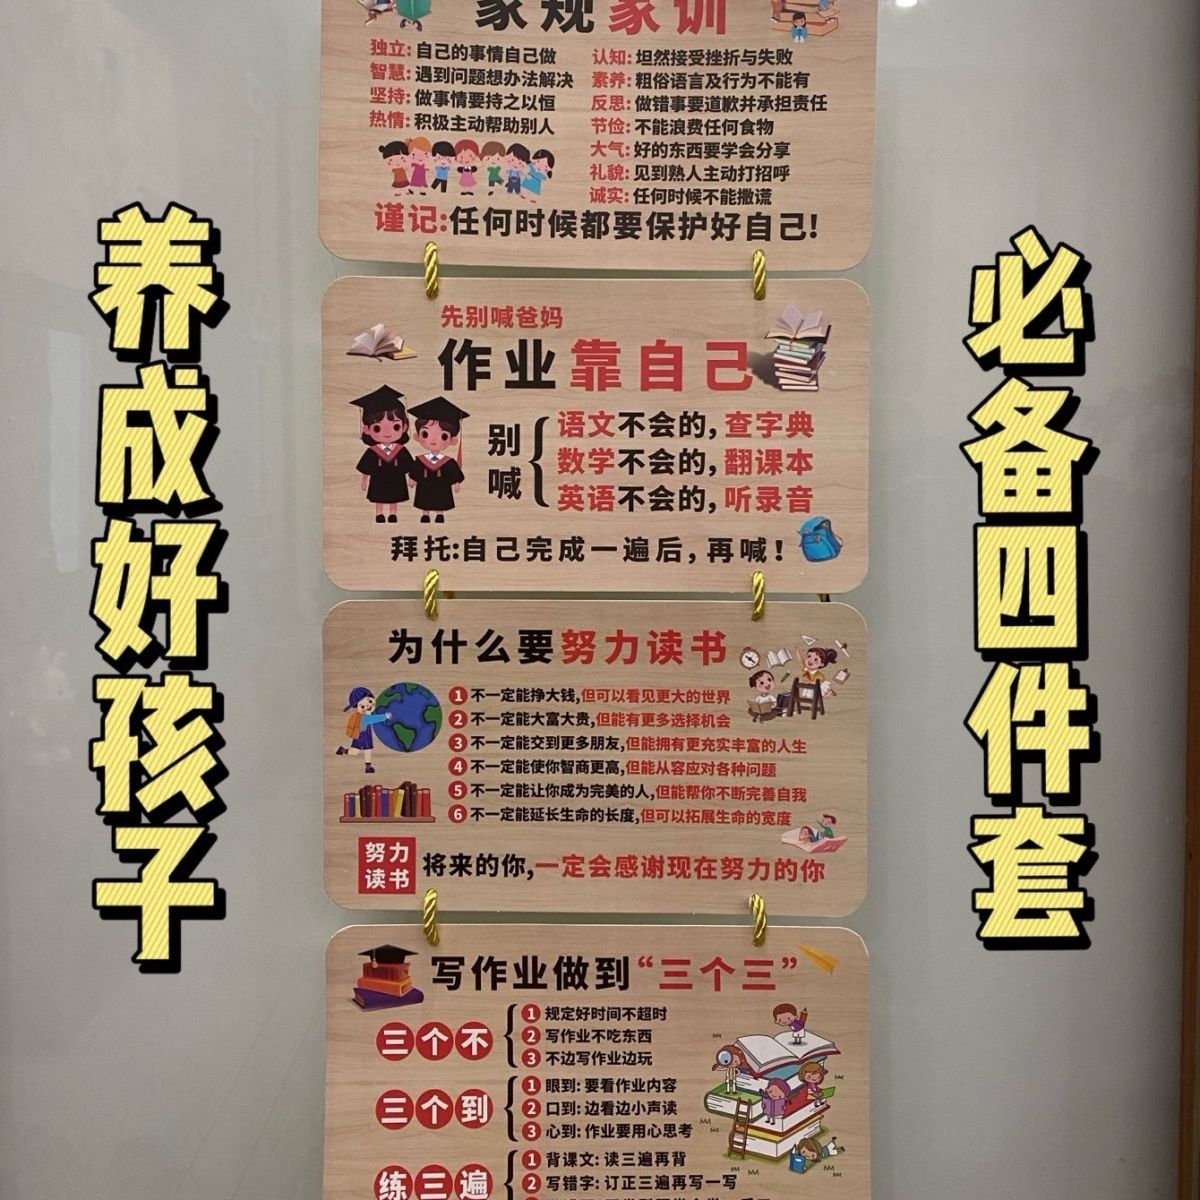 养成好孩子
必备四件套
家规家训
独立:自己的事情自己做
智慧:遇到问题想办法解决
坚持:做事情要持之以恒
热情:积极主动帮助别人
认知:坦然接受挫折与失败
素养:粗俗语言及行为不能有
反思:做错事要道歉并承担责任
节俭:不能浪费任何食物
大气:好的东西要学会分享
礼貌:见到熟人主动打招呼
诚实:任何时候不能撒谎
谨记:任何时候都要保护好自己!
先别喊爸妈
作业靠自己
别喊
语文不会的,查字典
数学不会的,翻课本
英语不会的,听录音
拜托:自己完成一遍后,再喊!
为什么要努力读书
1 不一定能挣大钱,但可以看见更大的世界
2 不一定能大富大贵,但能有更多选择机会
3 不一定能交到更多朋友,但能拥有更充实丰富的人生
4 不一定能使你智商更高,但能从容应对各种问题
5 不一定能让你成为完美的人,但能帮你不断完善自我
6 不一定能延长生命的长度,但可以拓展生命的宽度
努力
读书
将来的你,一定会感谢现在努力的你
写作业做到“三个三”
三个不
1 规定好时间不超时
2 写作业不吃东西
3 不边写作业边玩
三个到
1 眼到:要看作业内容
2 口到:边看边小声读
3 心到:作业要用心思考
练三遍
1 背课文:读三遍再背
2 写错字:订正三遍再写一写